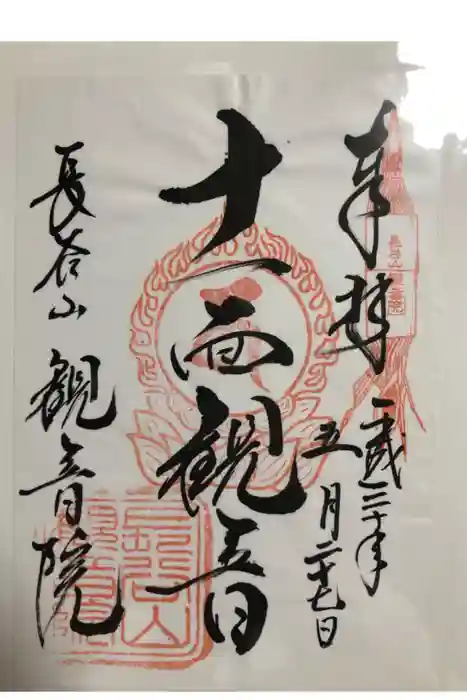 奉拝
平成三十年
五月二十七日
十一面観音
長谷山観音院